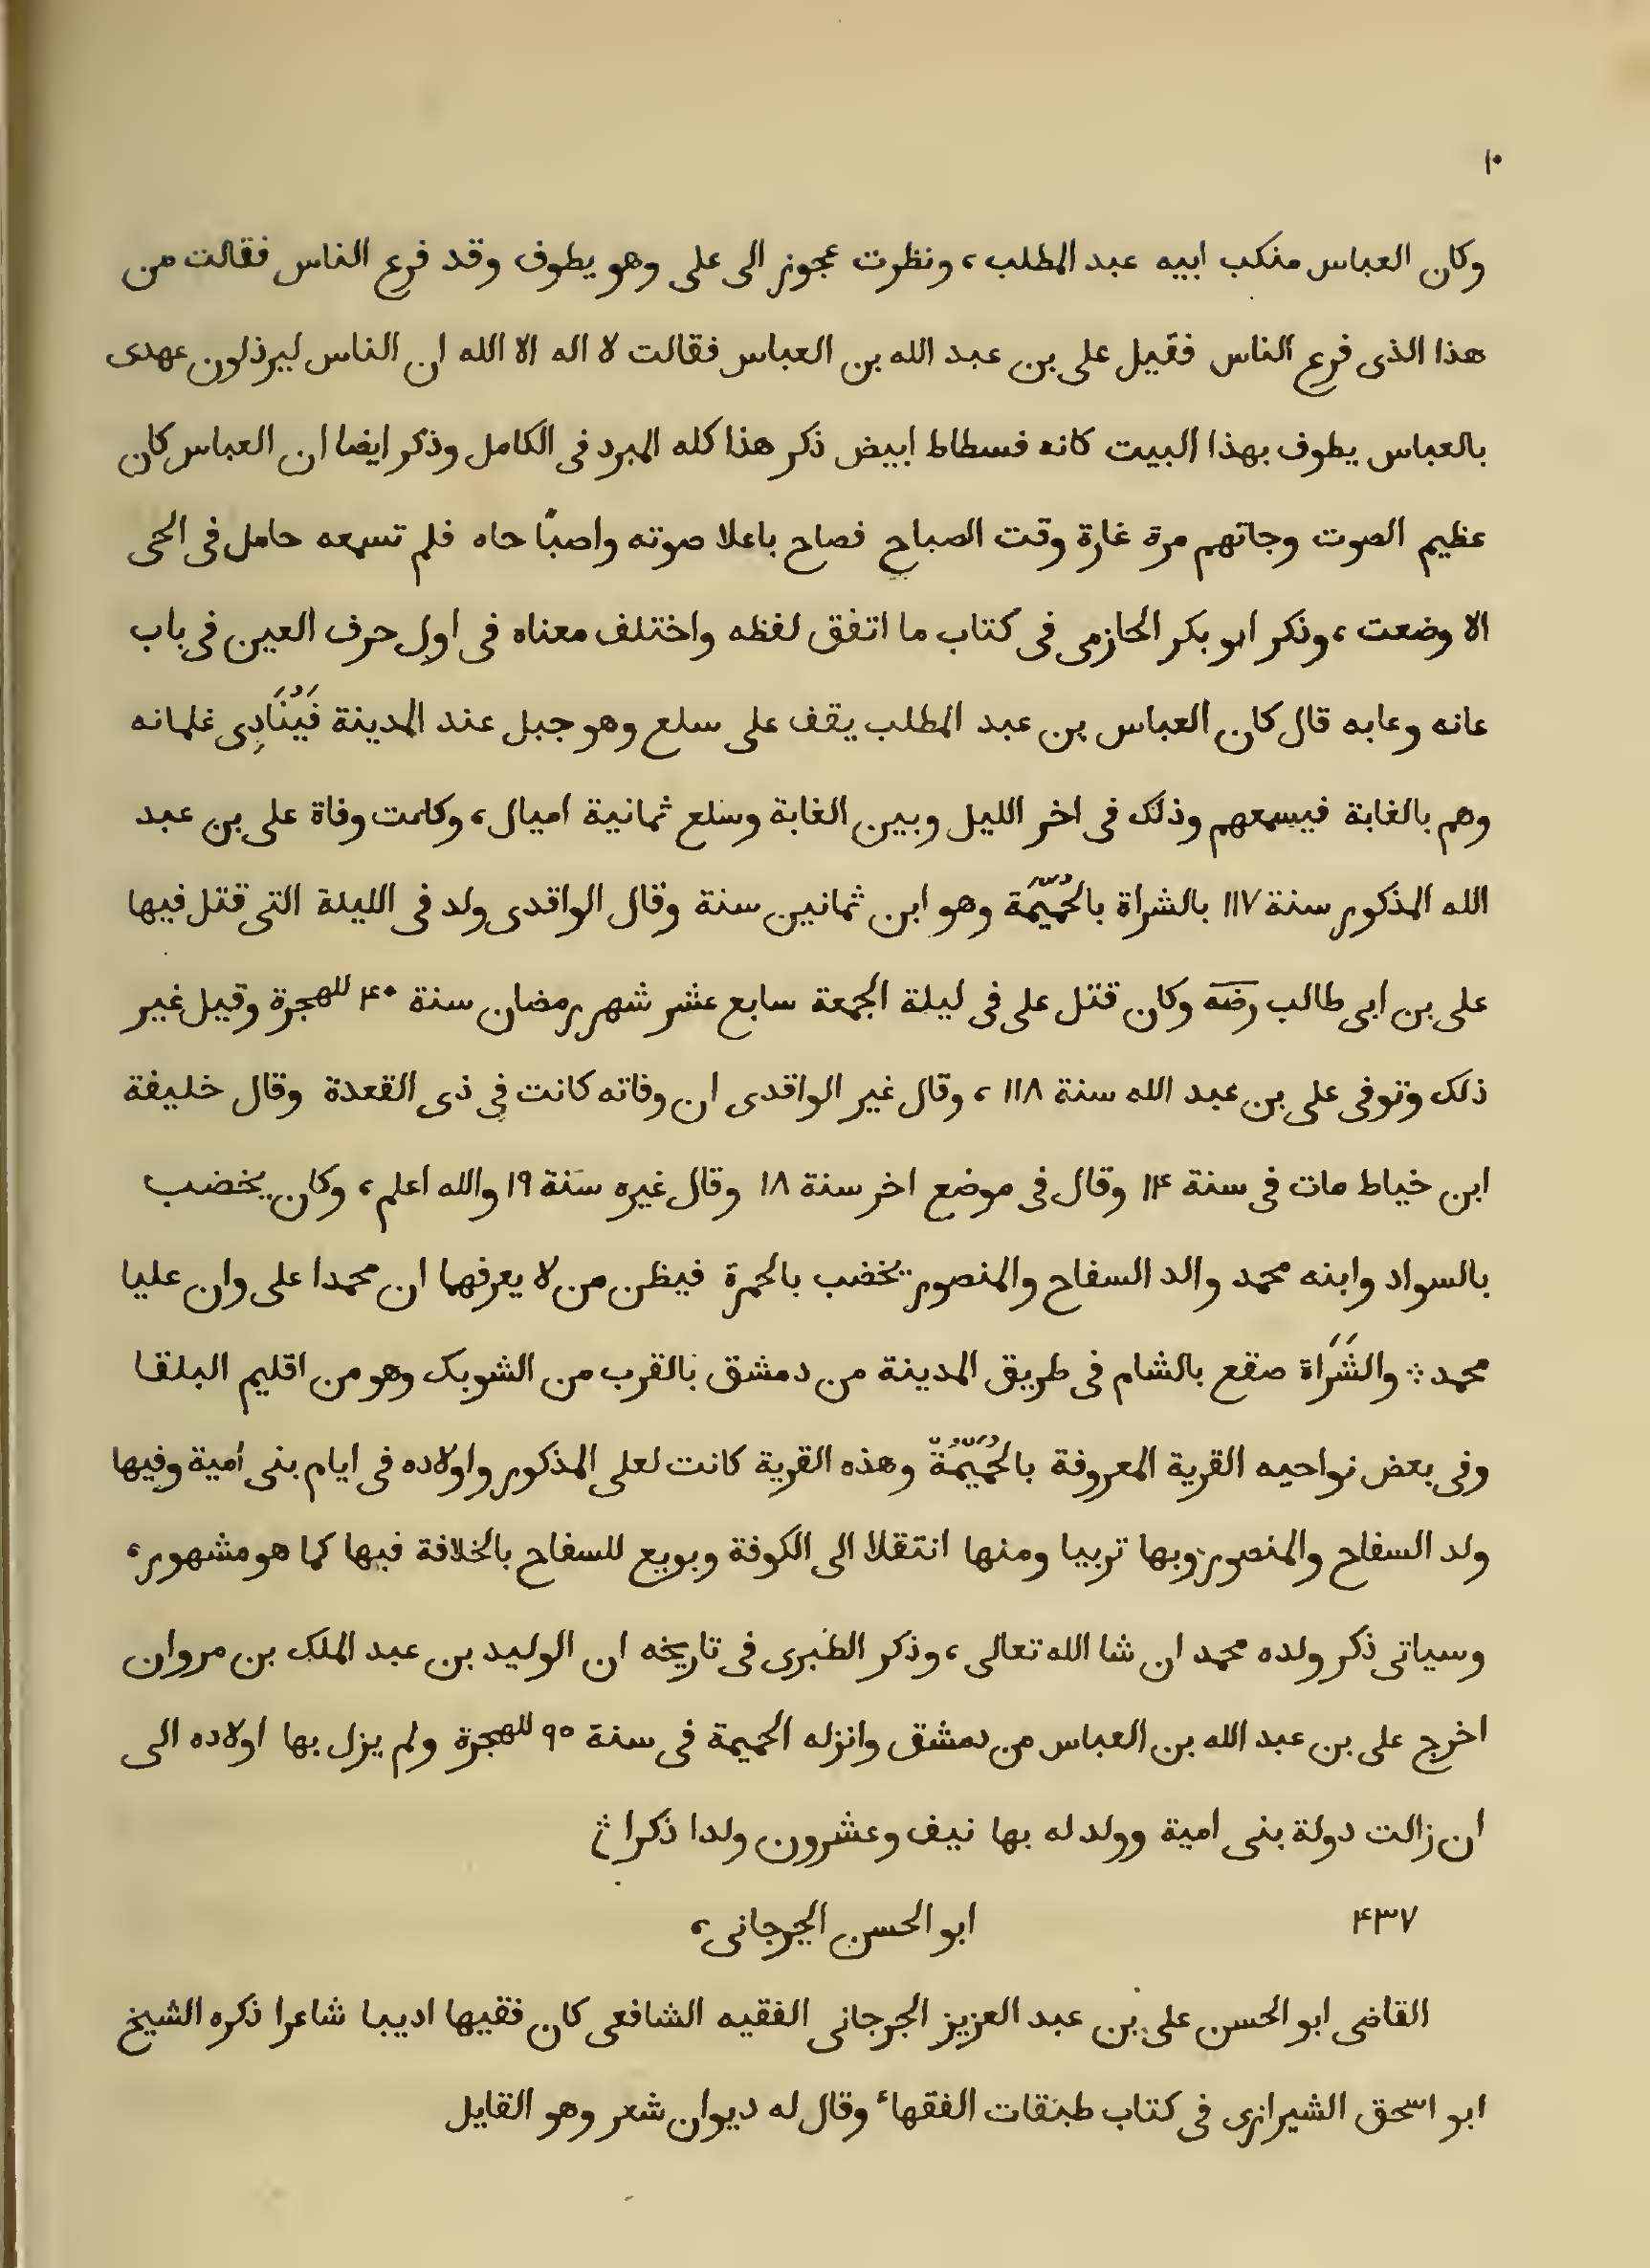 ١٠
وكان العباس منكب ابيه عبد المطلب، ونظرت عجوز الى على وهو يطوف وقد فرع الناس فقالت من
هذا الذى فرع الناس فقيل على بن عبد الله بن العباس فقالت لا اله الا الله ان الناس ليرذلون عهدى
بالعباس يطوف بهذا البيت كانه فسطاط ابيض ذكر هذا كله المبرد فى الكامل وذكر ايضا ان العباس كان
عظيم الصوت وجاتهم مرة غارة وقت الصباح فصاح باعلا صوته واصباحاه فلم تسمعه حامل فى الحى
الا وضعت، وذكر ابو بكر الحازمى فى كتاب ما اتفق لفظه واختلف معناه فى اول حرف العين فى باب
عانه وعابه قال كان العباس بن عبد المطلب يقف على سلع وهو جبل عند المدينة فَيُنَادِى غلمانه
وهم بالغابة فيسمعهم وذلك فى اخر الليل وبين الغابة وسلع ثمانية اميال، وكانت وفاة على بن عبد
الله المذكور سنة ١١٧ بالشراة بالحُمَيْمَة وهو ابن ثمانين سنة وقال الواقدى ولد فى الليلة التى قتل فيها
على بن ابى طالب رضه وكان قتل على فى ليلة الجمعة سابع عشر شهر رمضان سنة ۴٠ للهجرة وقيل غير
ذلك وتوفى على بن عبد الله سنة ١١٨، وقال غير الواقدى ان وفاته كانت فى ذى القعدة وقال خليفة
ابن خياط مات فى سنة ١۴ وقال فى موضع اخر سنة ١٨ وقال غيره سنة ١٩ والله اعلم، وكان يخضب
بالسواد وابنه محمد والد السفاح والمنصور يخضب بالحمرة فيظن من لا يعرفهما ان محمدا على وان عليا
محمد ؞ والشَرَاة صقع بالشام فى طريق المدينة من دمشق بالقرب من الشوبك وهو من اقليم البلقا
وفى بعض نواحيه القرية المعروفة بالحُمَيْمَة وهذه القرية كانت لعلى المذكور واولاده فى ايام بنى امية وفيها
ولد السفاح والمنصور وبها تربيا ومنها انتقلا الى الكوفة وبويع للسفاح بالخلافة فيها كما هو مشهور،
وسياتى ذكر ولده محمد ان شا الله تعالى، وذكر الطبرى فى تاريخه ان الوليد بن عبد الملك بن مروان
اخرج على بن عبد الله بن العباس من دمشق وانزله الحميمة فى سنة ٩٥ للهجرة ولم يزل بها اولاده الى
ان زالت دولة بنى امية وولد له بها نيف وعشرون ولدا ذكرا ؞
۴٣٧ ابو الحسن الجرجانى،
القاضى ابو الحسن على بن عبد العزيز الجرجانى الفقيه الشافعى كان فقيها اديبا شاعرا ذكره الشيخ
ابو اسحق الشيرازى فى كتاب طبقات الفقهاء وقال له ديوان شعر وهو القايل